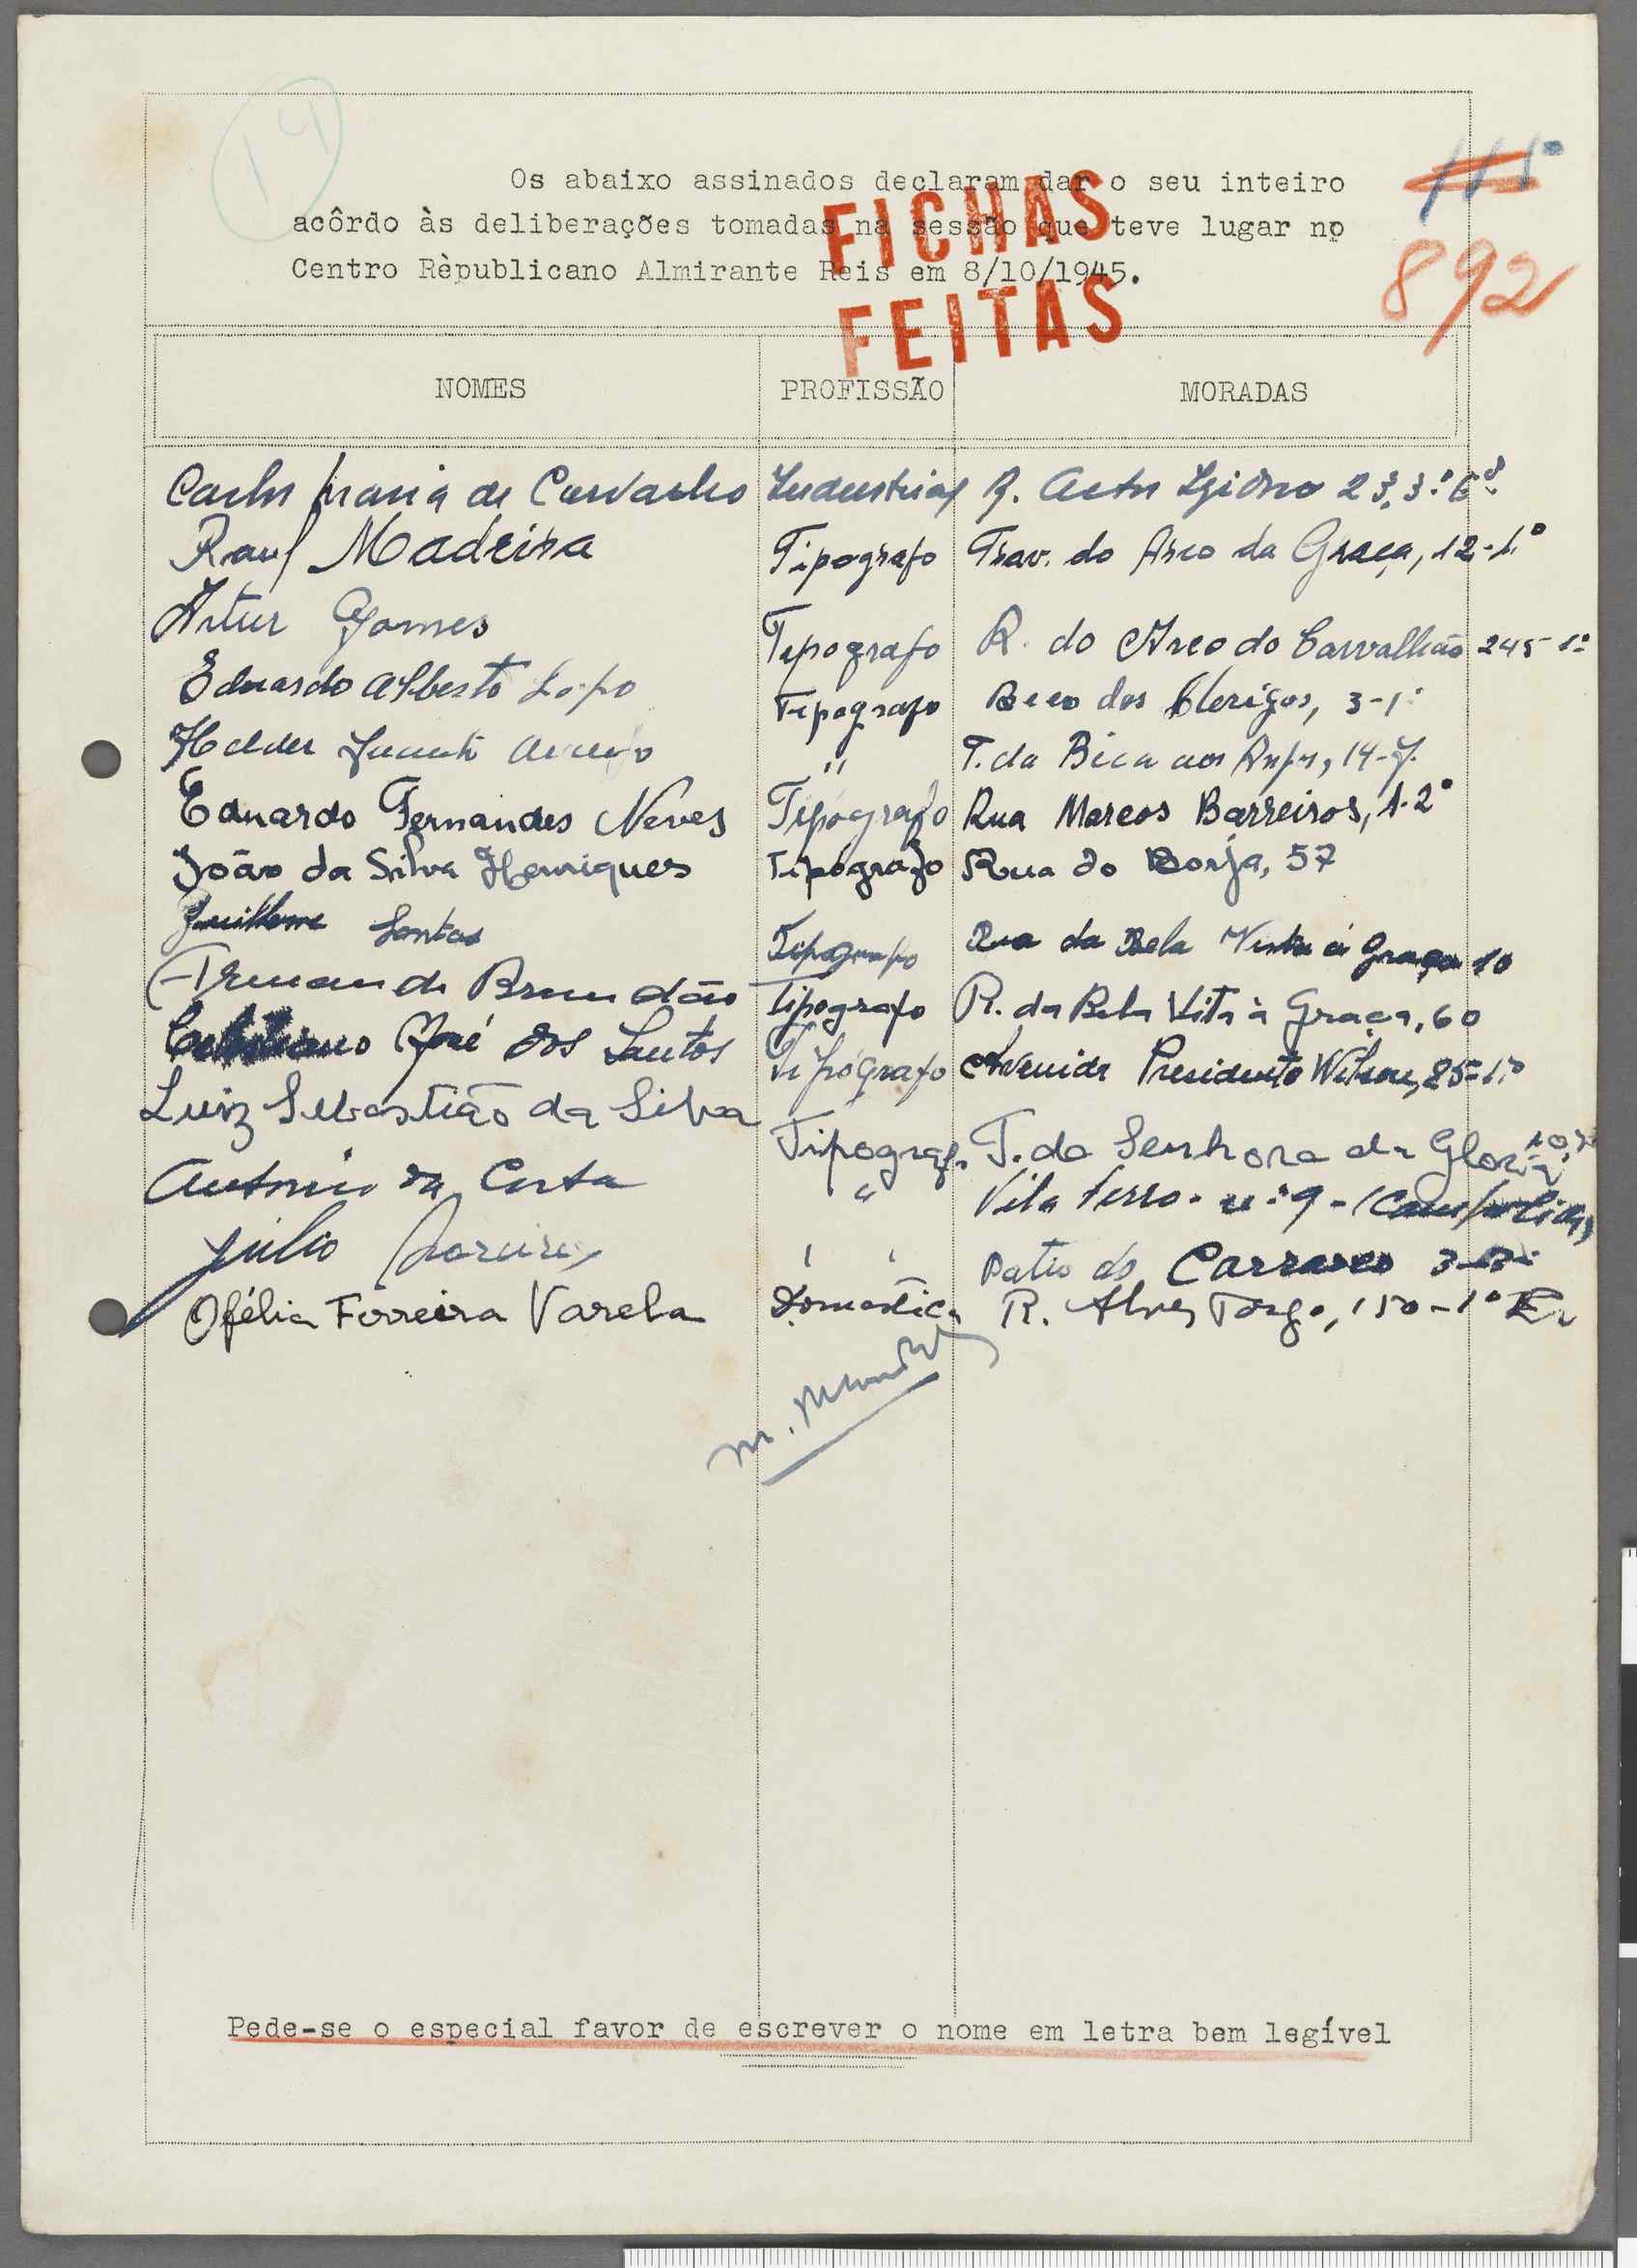 14
Os abaixo assinados declaram dar o seu inteiro
acôrdo às deliberações tomadas na sessão que teve lugar no
Centro Rèpublicano Almirante Reis em 8/10/1945.
FICHAS
FEITAS
892
NOMES PROFISSÃO MORADAS
Carlos Maria de Carvalho Industrial R. Actor Isidoro 23, 3.º
Raul Madeira Tipografo Trav. do Arco da Graça, 12-1.º
Artur Gomes Tipografo R. do Arco do Carvalhão 245-1º
Eduardo Alberto Lopo Tipografo Beco dos Clerigos, 3-1º
Helder " T. da Bica aos Anjos, 14-
Eduardo Fernandes Neves Tipógrafo Rua Marcos Barreiros, 1-2º
João da Silva Henriques Tipógrafo Rua do Borja, 57
Guilherme Santos Tipografo Rua da Bela Vista á Graça 10
Brandão Tipografo R. da Bela Vista à Graça, 60
José dos Santos Tipógrafo Avenida Presidente Wilson, 85-1.º
Luiz Sebastião da Silva Tipografo T. da Senhora da Gloria
António da Costa " Vila Ferro - nº 9 -
Júlio Patio do
Ofélia Ferreira Varela Doméstica R. Alves Torgo, 150-1º
Pede-se o especial favor de escrever o nome em letra bem legível